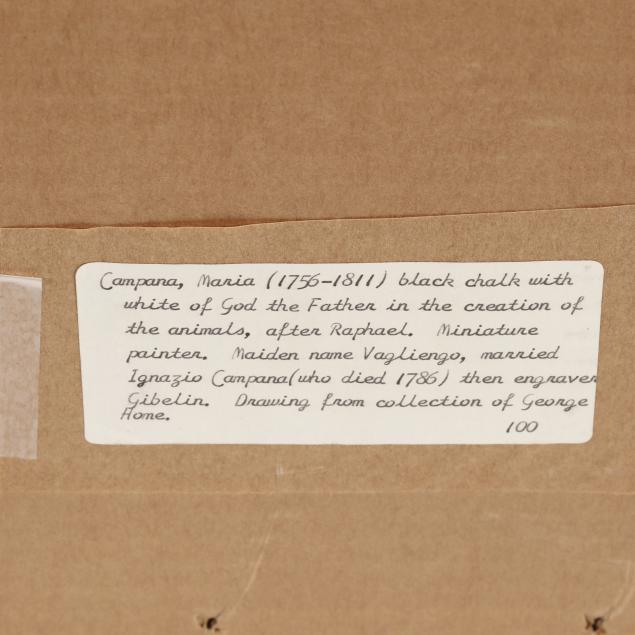 Campana, Maria (1756-1811) black chalk with
white of God the Father in the creation of
the animals, after Raphael. Miniature
painter. Maiden name Vagliengo, married
Ignazio Campana(who died 1786) then engraver
Gibelin. Drawing from collection of George
Home.
100